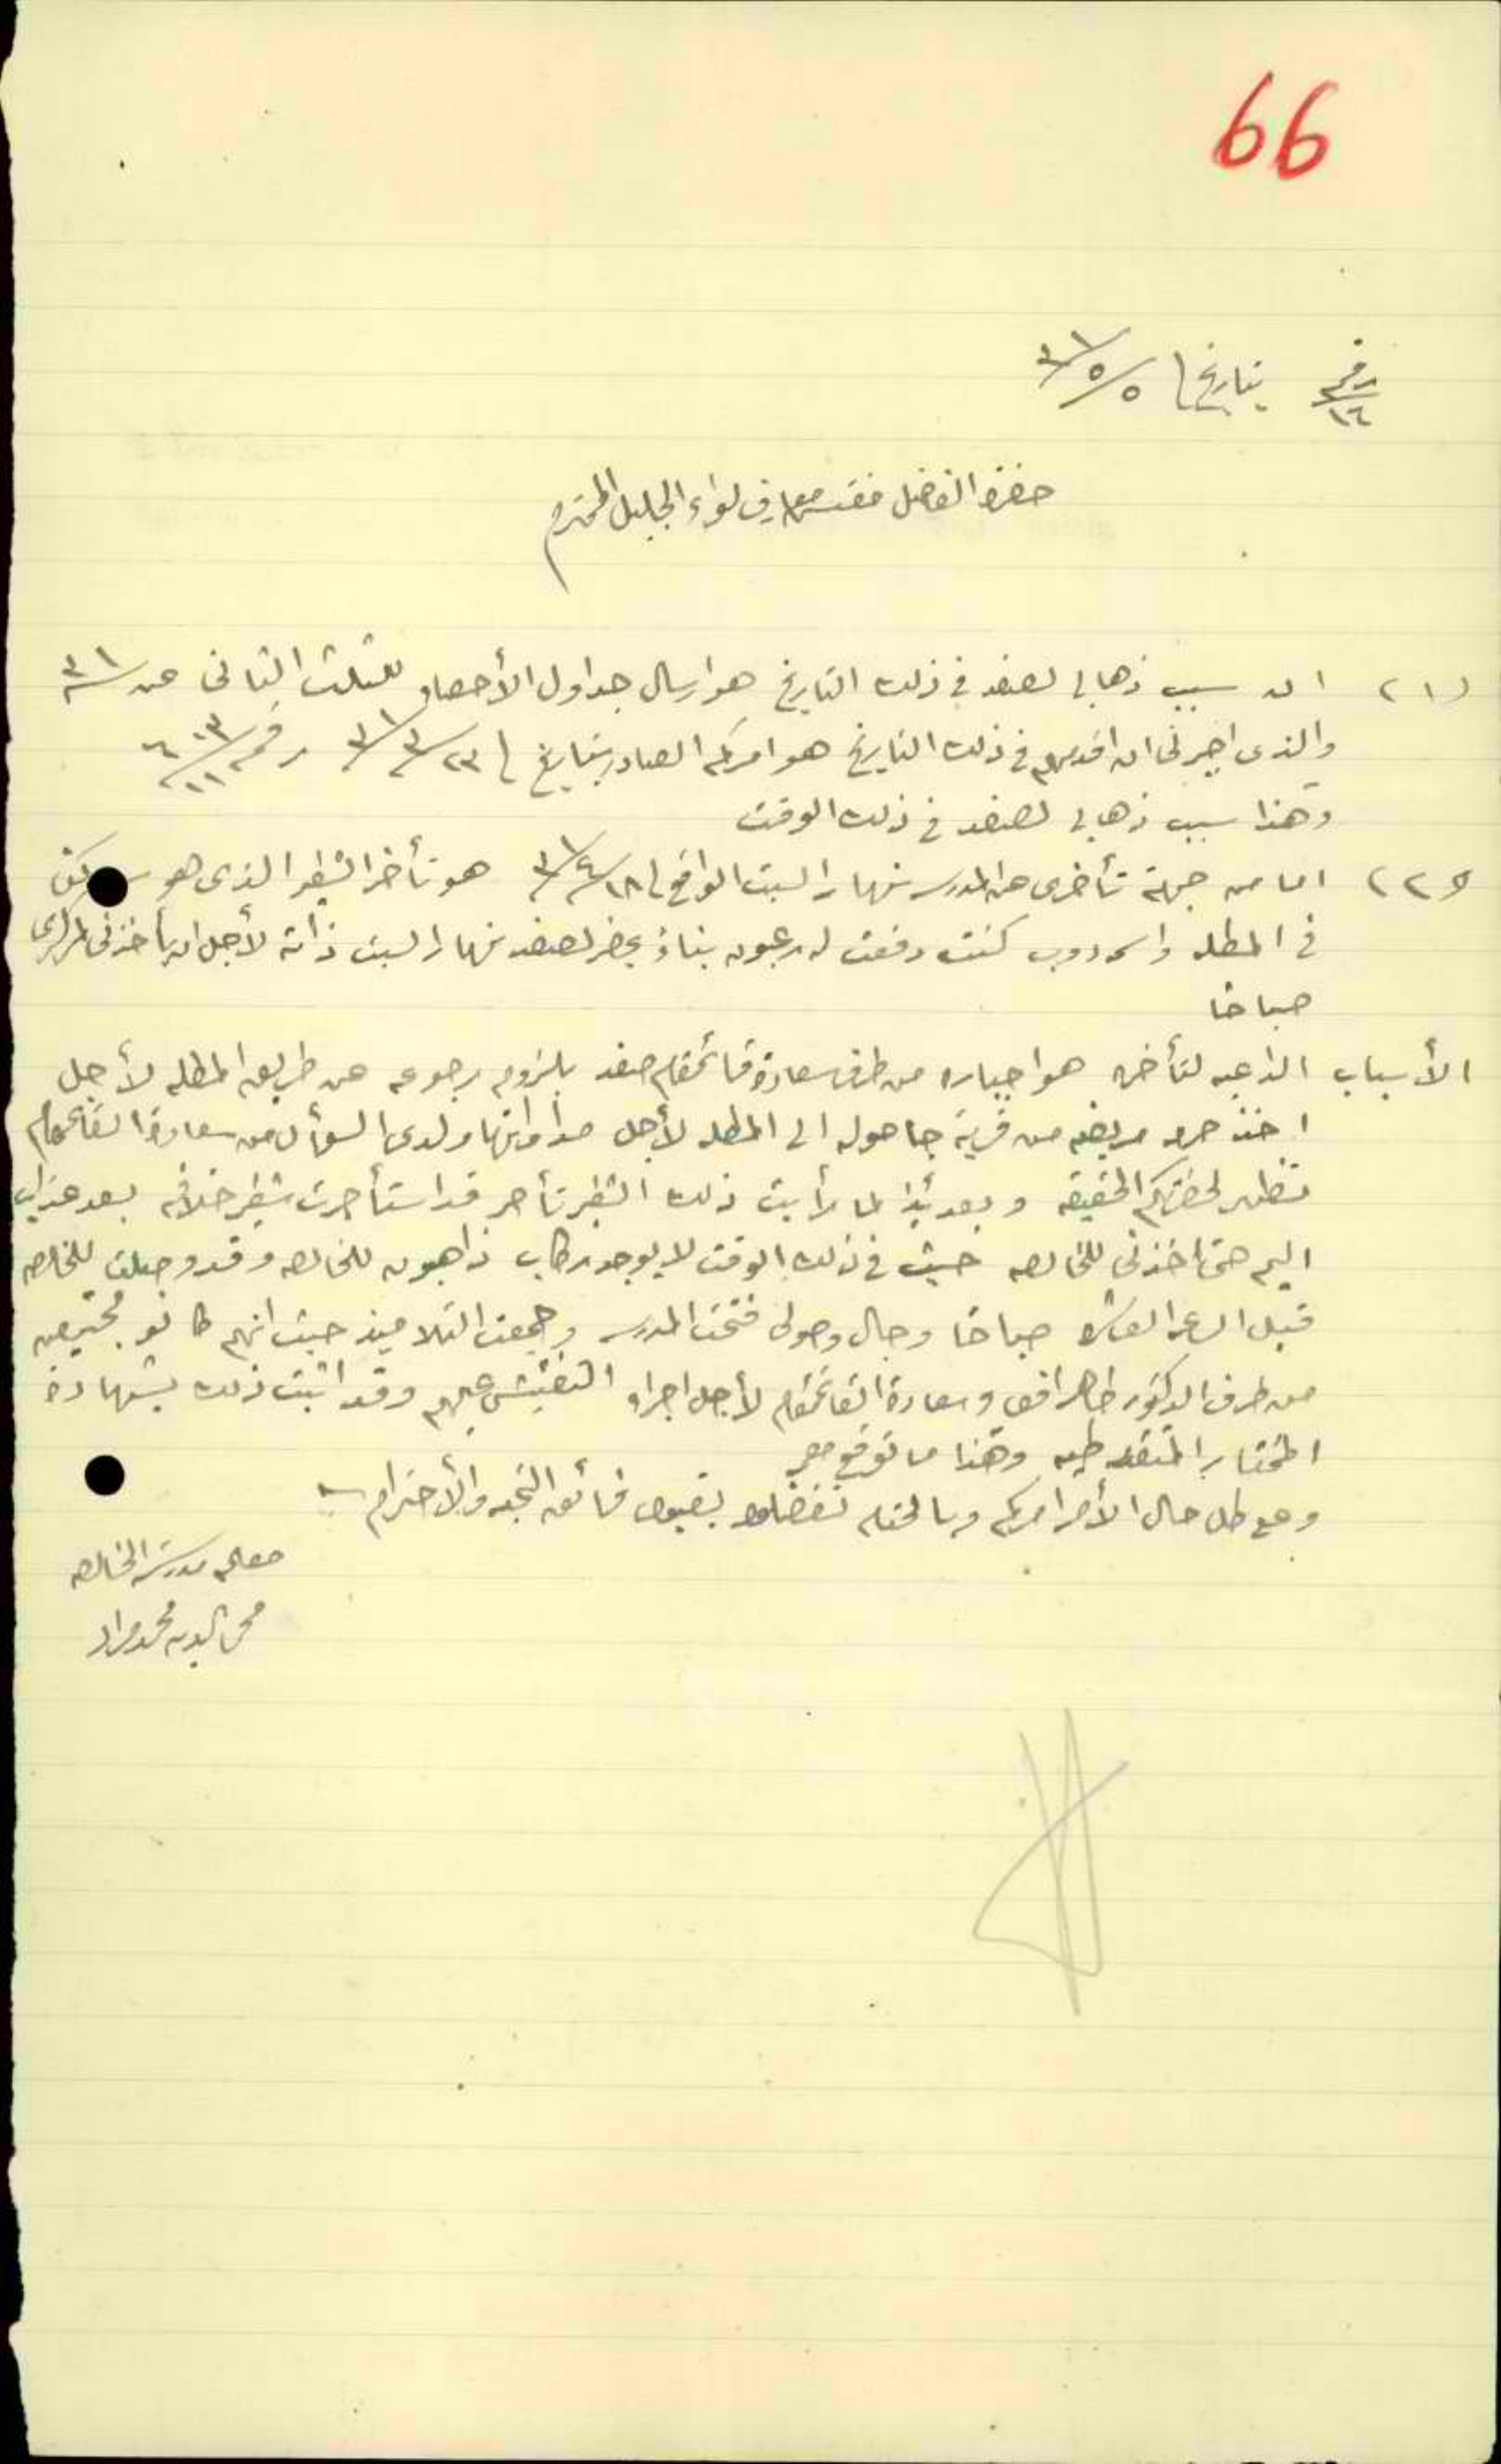 66
رقم ١٦ بتاريخ ٥/٥/٣١
حضرة الفاضل مفتش معارف لواء الجليل المحترم
(١) ان سبب ذهابي لصفد في ذلك التاريخ هو ارسال جداول الأحصاء للثلث الثاني عن ٣١
والذي اجبرني ان اقدمهم في ذلك التاريخ هو امركم الصادر بتاريخ ٢٣/٣/٣١ رقم
وهذا سبب ذهابي لصفد في ذلك الوقت
(٢) اما من جهة تأخري عن المدرسه نهار السبت الواقع في ١٨/٤/٣١ هو تأخر الشفير الذي هو
في المطله كنت دفعت له رعبون بناءً يحضر لصفد نهار السبت ذاته لأجل ان يأخذني
صباحا
الأسباب الداعيه لتأخره هو اجباره من طرف سعادة قائمقام صفد بلزوم رجوعه عن طريق المطله لأجل
اخذ مريضه من قرية جاحوله الى المطله لأجل مداواتها ولدى السؤال من سعادة القائمقام
تظهر لحضرتكم الحقيقه وبعدئذ لما رأيت ذلك الشفير تأخر قد استأجرت شفير خلافه بعد عذاب
اليم حتى اخذني للخالصه حيث في ذلك الوقت لا يوجد ركاب ذاهبون للخالصه وقد وصلت للخالصه
قبل الساعه العاشره صباحا وحال وصولي فتحت المدرسه وجمعت التلاميذ حيث انهم كانو مجتمعين
من طرف الدكتور طاهر افندي وسعادة القائمقام لأجل اجراء التفتيش عليهم وقد اثبت ذلك بشهادة
المختار المتقدمه طيه وهذا ما توقع معي
ومع كل حال الأمر امركم وبالختام تفضلوا بقبول فائق التحيه والأحترام
معلم مدرسة الخالصه
محي الدين محمد مراد